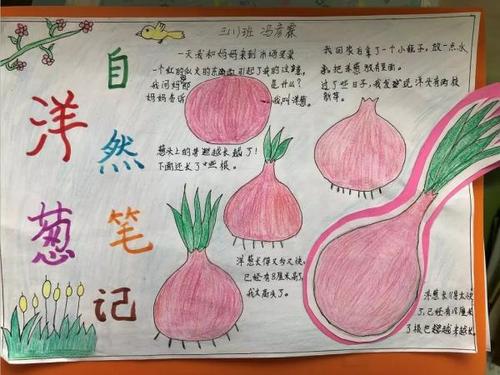 三(1)班 冯彦霖
自然笔记
洋葱
一天我和妈妈来到市场买菜
一个红的似火的东西引起了我的注意,
我问妈妈 是什么?
妈妈告诉 我叫洋葱。
我回家后拿了一个小瓶子,放一点水
来,把洋葱放在里面。
过了些日子,我发现洋葱有两枝
新芽。
葱头上的芽越长越高了!
下面还长了 根。
洋葱长得又匀又快,
已经有8厘米高了,
我太高兴了。
洋葱长得太快
了,已经有18厘米
了根也越来越长